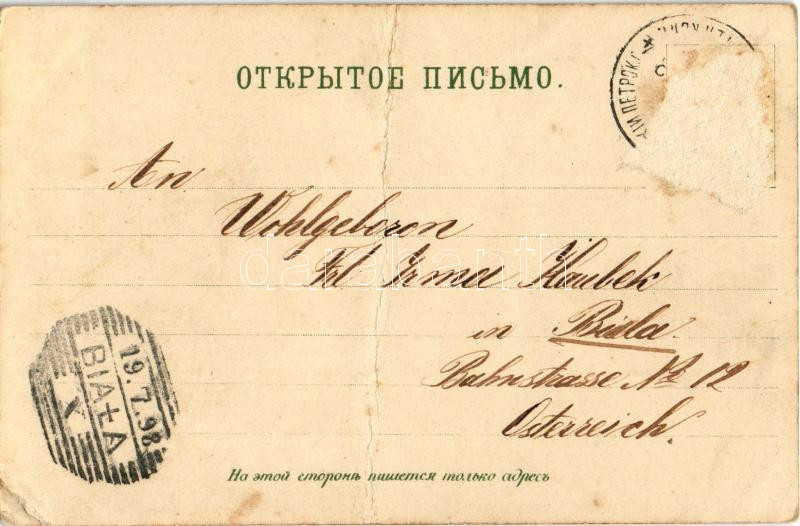 ОТКРЫТОЕ ПИСЬМО.
ПЕТРОК
An
Wohlgeboren
Frl Irma Klaubek
in Biala.
Bahnstrasse № 12
Österreich.
19.7.98.
BIAŁA
На этой сторонѣ пишется только адресъ
darabanth